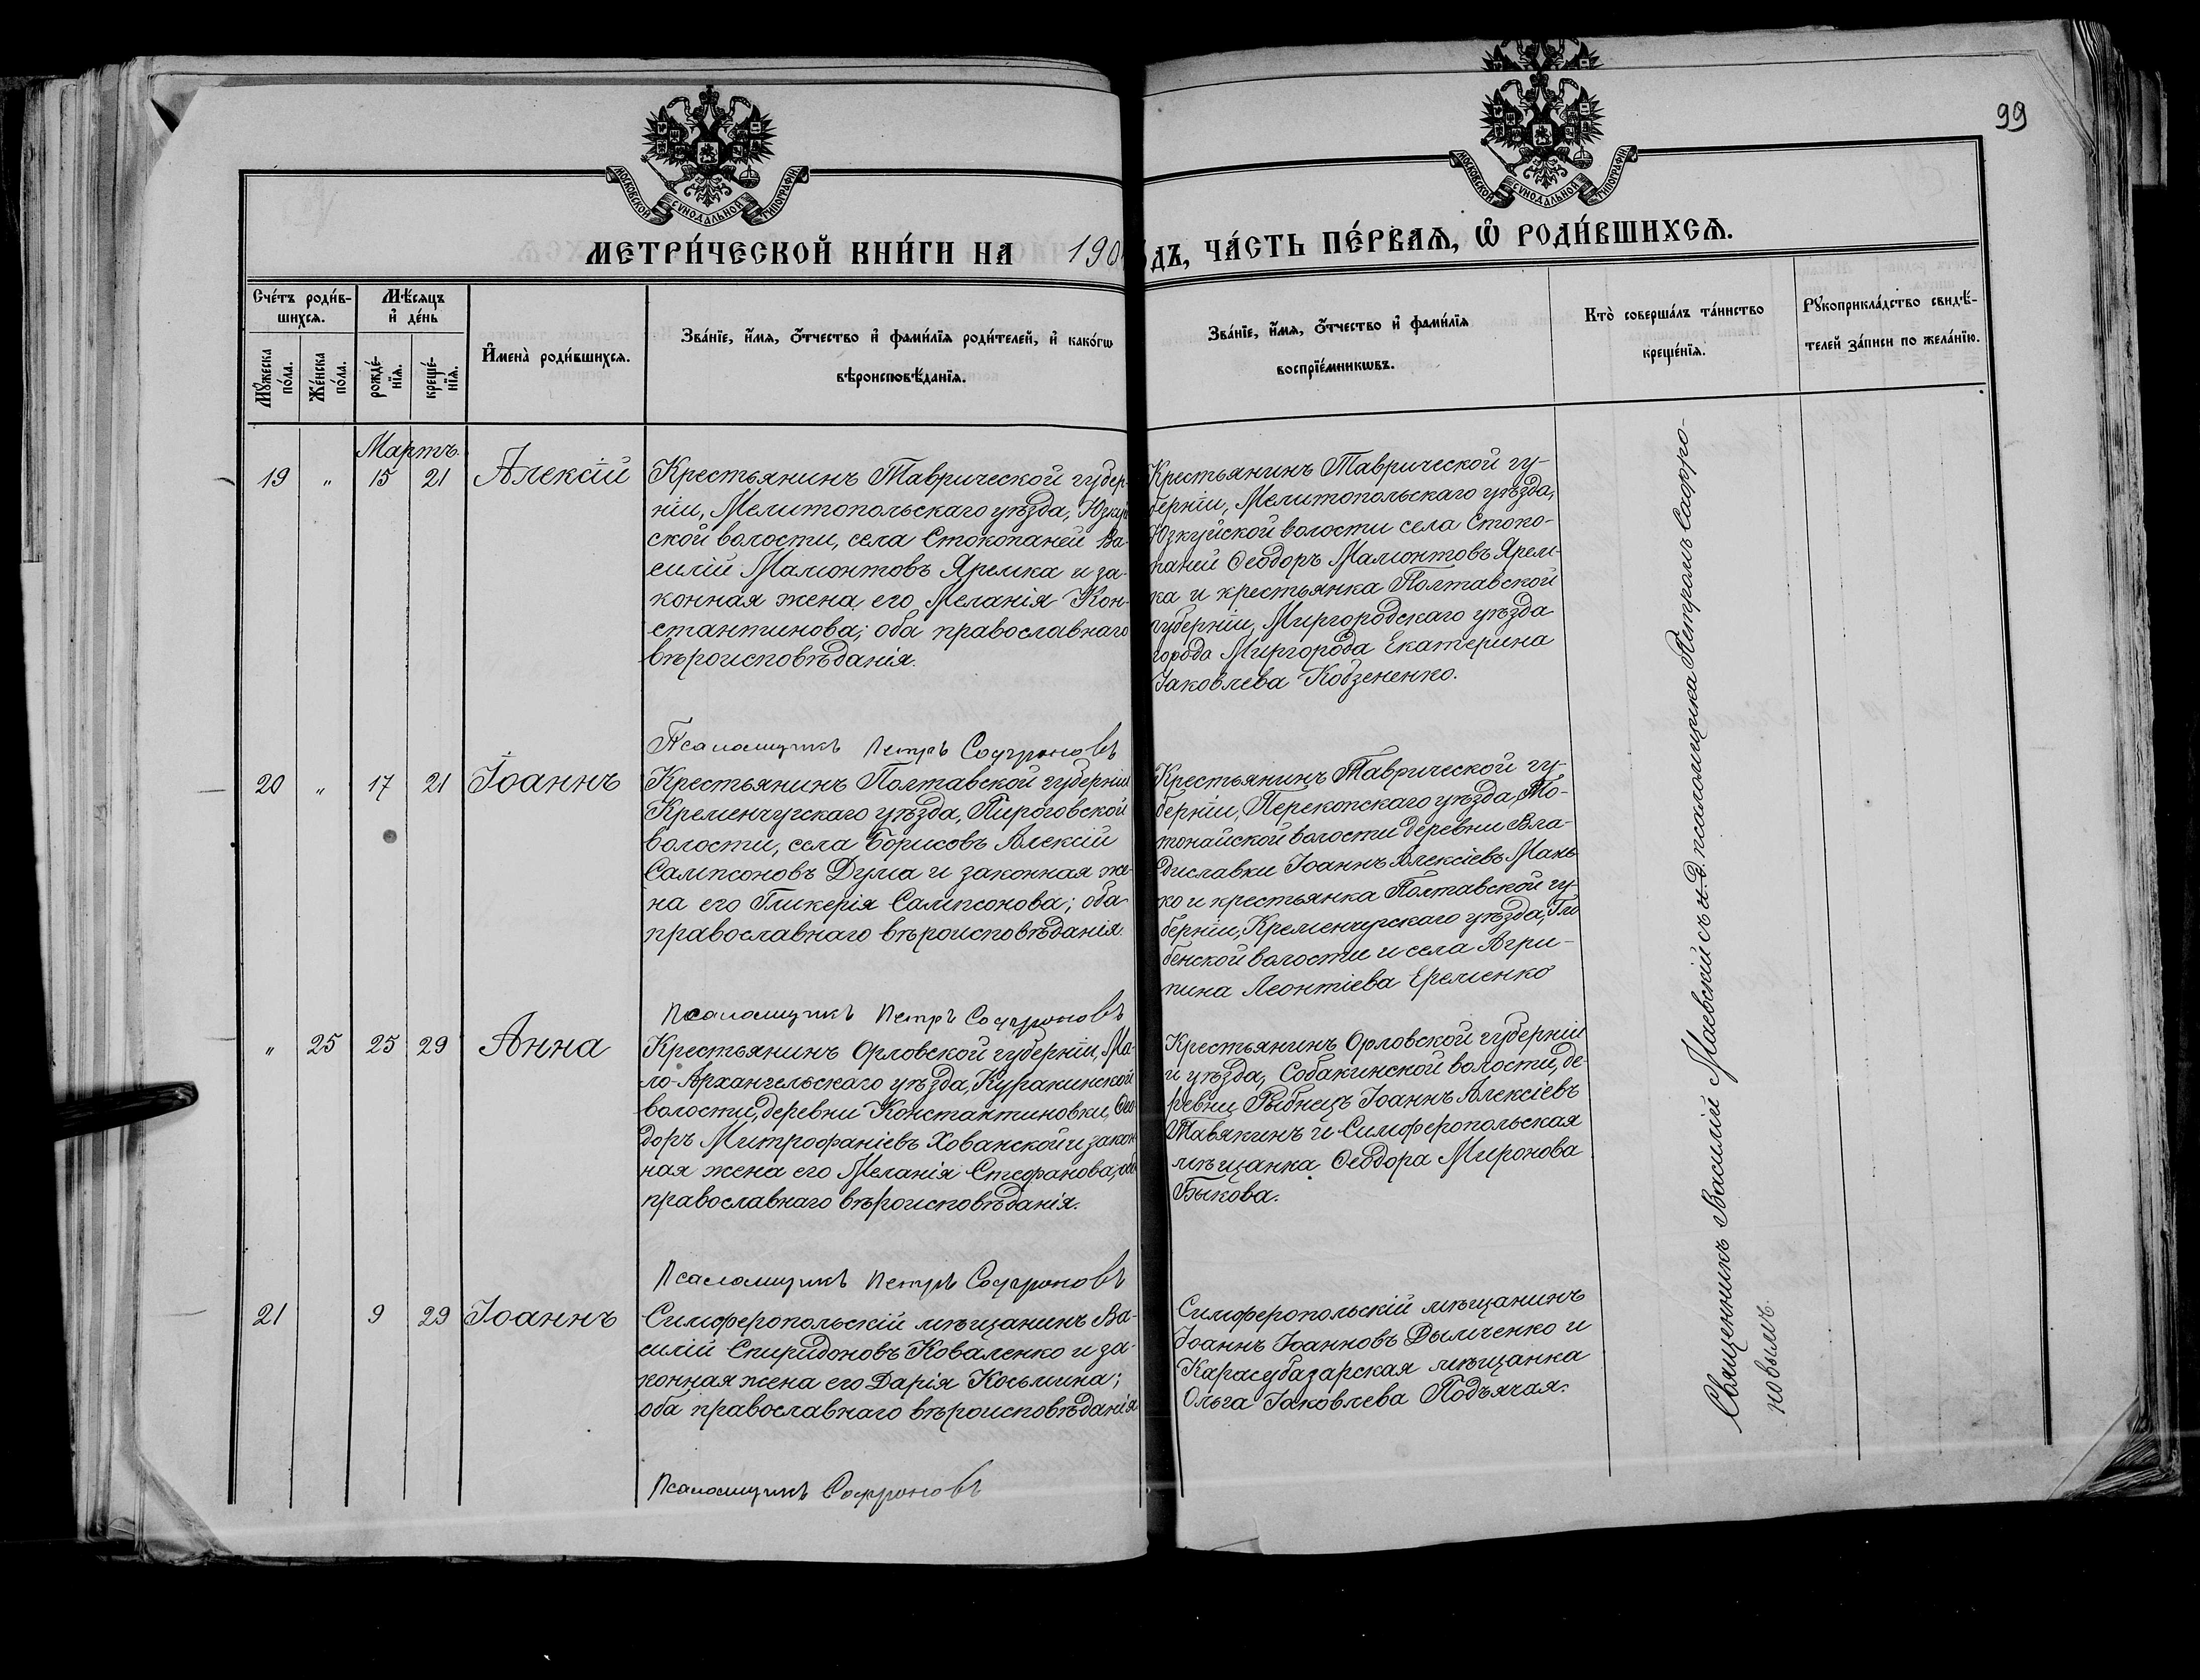 99
МОСКОВСКОЙ СУНОДАЛЬНОЙ ТИПОГРАФІИ
МОСКОВСКОЙ СУНОДАЛЬНОЙ ТИПОГРАФІИ
МЕТРИ́ЧЕСКОЙ КНИ́ГИ НА 190
дъ, ЧА́СТЬ ПЕ́РВАѦ, Ѡ҆ РОДИ́ВШИХСѦ.
Сче́тъ роди́в-
шихсѧ.
Мꙋ́жеска
по́ла.
Же́нска
по́ла.
Мѣ́сѧцъ
и҆ де́нь
рожде́-
нїѧ.
креще́-
нїѧ.
И҆мена̀ роди́вшихсѧ.
Зва́нїе, и҆́мѧ, ѻ҆́тчество и҆ фами́лїѧ роди́телей, и҆ како́гѡ
вѣроисповѣ́данїѧ.
Зва́нїе, и҆́мѧ, ѻ҆́тчество и҆ фами́лїѧ
воспрїе́мникѡвъ.
Кто̀ соверша́лъ та́инство
креще́нїѧ.
Рꙋкоприкла́дство свидѣ́-
телей за́писи по жела́нїю.
Мартъ.
19 " 15 21 Алексій
Крестьянинъ Таврической губер-
ніи, Мелитопольскаго уѣзда, Юзкуй
ской волости, села Стокопаней Ва-
силій Мамонтовъ Яремка и за-
конная жена его Меланія Кон-
стантинова; оба православнаго
вѣроисповѣданія.
Псаломщикъ Петръ Софроновъ
Крестьянинъ Таврической гу-
берніи, Мелитопольскаго уѣзда,
Юзкуйской волости села Стоко-
паней Ѳеодоръ Мамонтовъ Ярем-
ка и крестьянка Полтавской
губерніи, Миргородскаго уѣзда
города Миргорода Екатерина
Іаковлева Кобзененко.
20 " 17 21 Іоаннъ
Крестьянинъ Полтавской губерніи
Кременчугскаго уѣзда, Пироговской
волости, села Борисовъ Алексій
Сампсоновъ Дума и законная же-
на его Гликерія Сампсонова; оба
православнаго вѣроисповѣданія.
Псаломщикъ Петръ Софроновъ
Крестьянинъ Таврической гу-
берніи, Перекопскаго уѣзда,
тонайской волости деревни Вла-
диславки Іоаннъ Алексіевъ Мань
ко и крестьянка Полтавской гу-
берніи, Кременчугскаго уѣзда, Гло
бенской волости и села Агри-
пина Леонтіева Еременко
" 25 25 29 Анна
Крестьянинъ Орловской губерніи, Ма-
ло-Архангельскаго уѣзда, Куракинской
волости, деревни Константиновки, Ѳео
доръ Митрофаніевъ Хованской и закон
ная жена его Меланія Стефанова; оба
православнаго вѣроисповѣданія.
Псаломщикъ Петръ Софроновъ
Крестьянинъ Орловской губерніи
и уѣзда, Собакинской волости, де-
ревни Рыбницъ Іоаннъ Алексіевъ
Тавякинъ и Симферопольская
мѣщанка Ѳеодора Миронова
Быкова.
21 9 29 Іоаннъ
Симферопольскій мѣщанинъ Ва-
силій Спиридоновъ Коваленко и за-
конная жена его Дарія Косьмина;
оба православнаго вѣроисповѣданія
Псаломщикъ Софроновъ
Симферопольскій мѣщанинъ
Іоаннъ Іоанновъ Дымченко и
Карасубазарская мѣщанка
Ольга Іаковлева Подъячая.
Священникъ Василій Маевскій съ и. д. псаломщика Петромъ Софро-
новымъ.